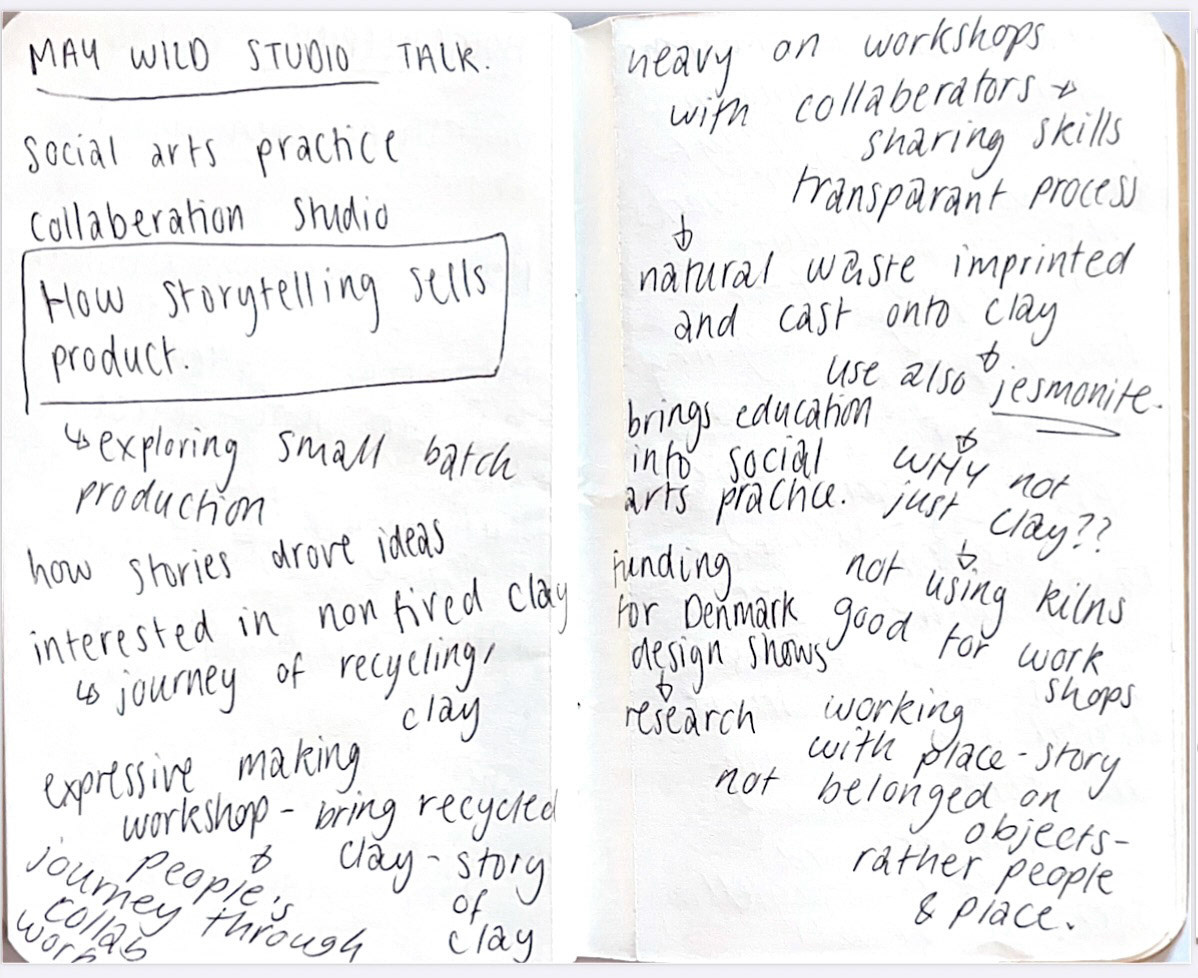 MAY WILD STUDIO TALK.
social arts practice
collaberation studio
How storytelling sells
product.
↳ exploring small batch
production
how stories drove ideas
interested in non fired clay
↳ journey of recycling,
clay
expressive making
workshop - bring recycled
clay - story
of
clay
people's
journey through
collab
work
heavy on workshops
with collaberators →
sharing skills
transparant process
↓
natural waste imprinted
and cast onto clay
↓
use also jesmonite.
↓
WHY not
just clay??
↓
not using kilns
good for work
shops
brings education
into social
arts practice.
funding
for Denmark
design shows
↓
research
working
with place - story
not belonged on
objects -
rather people
& place.